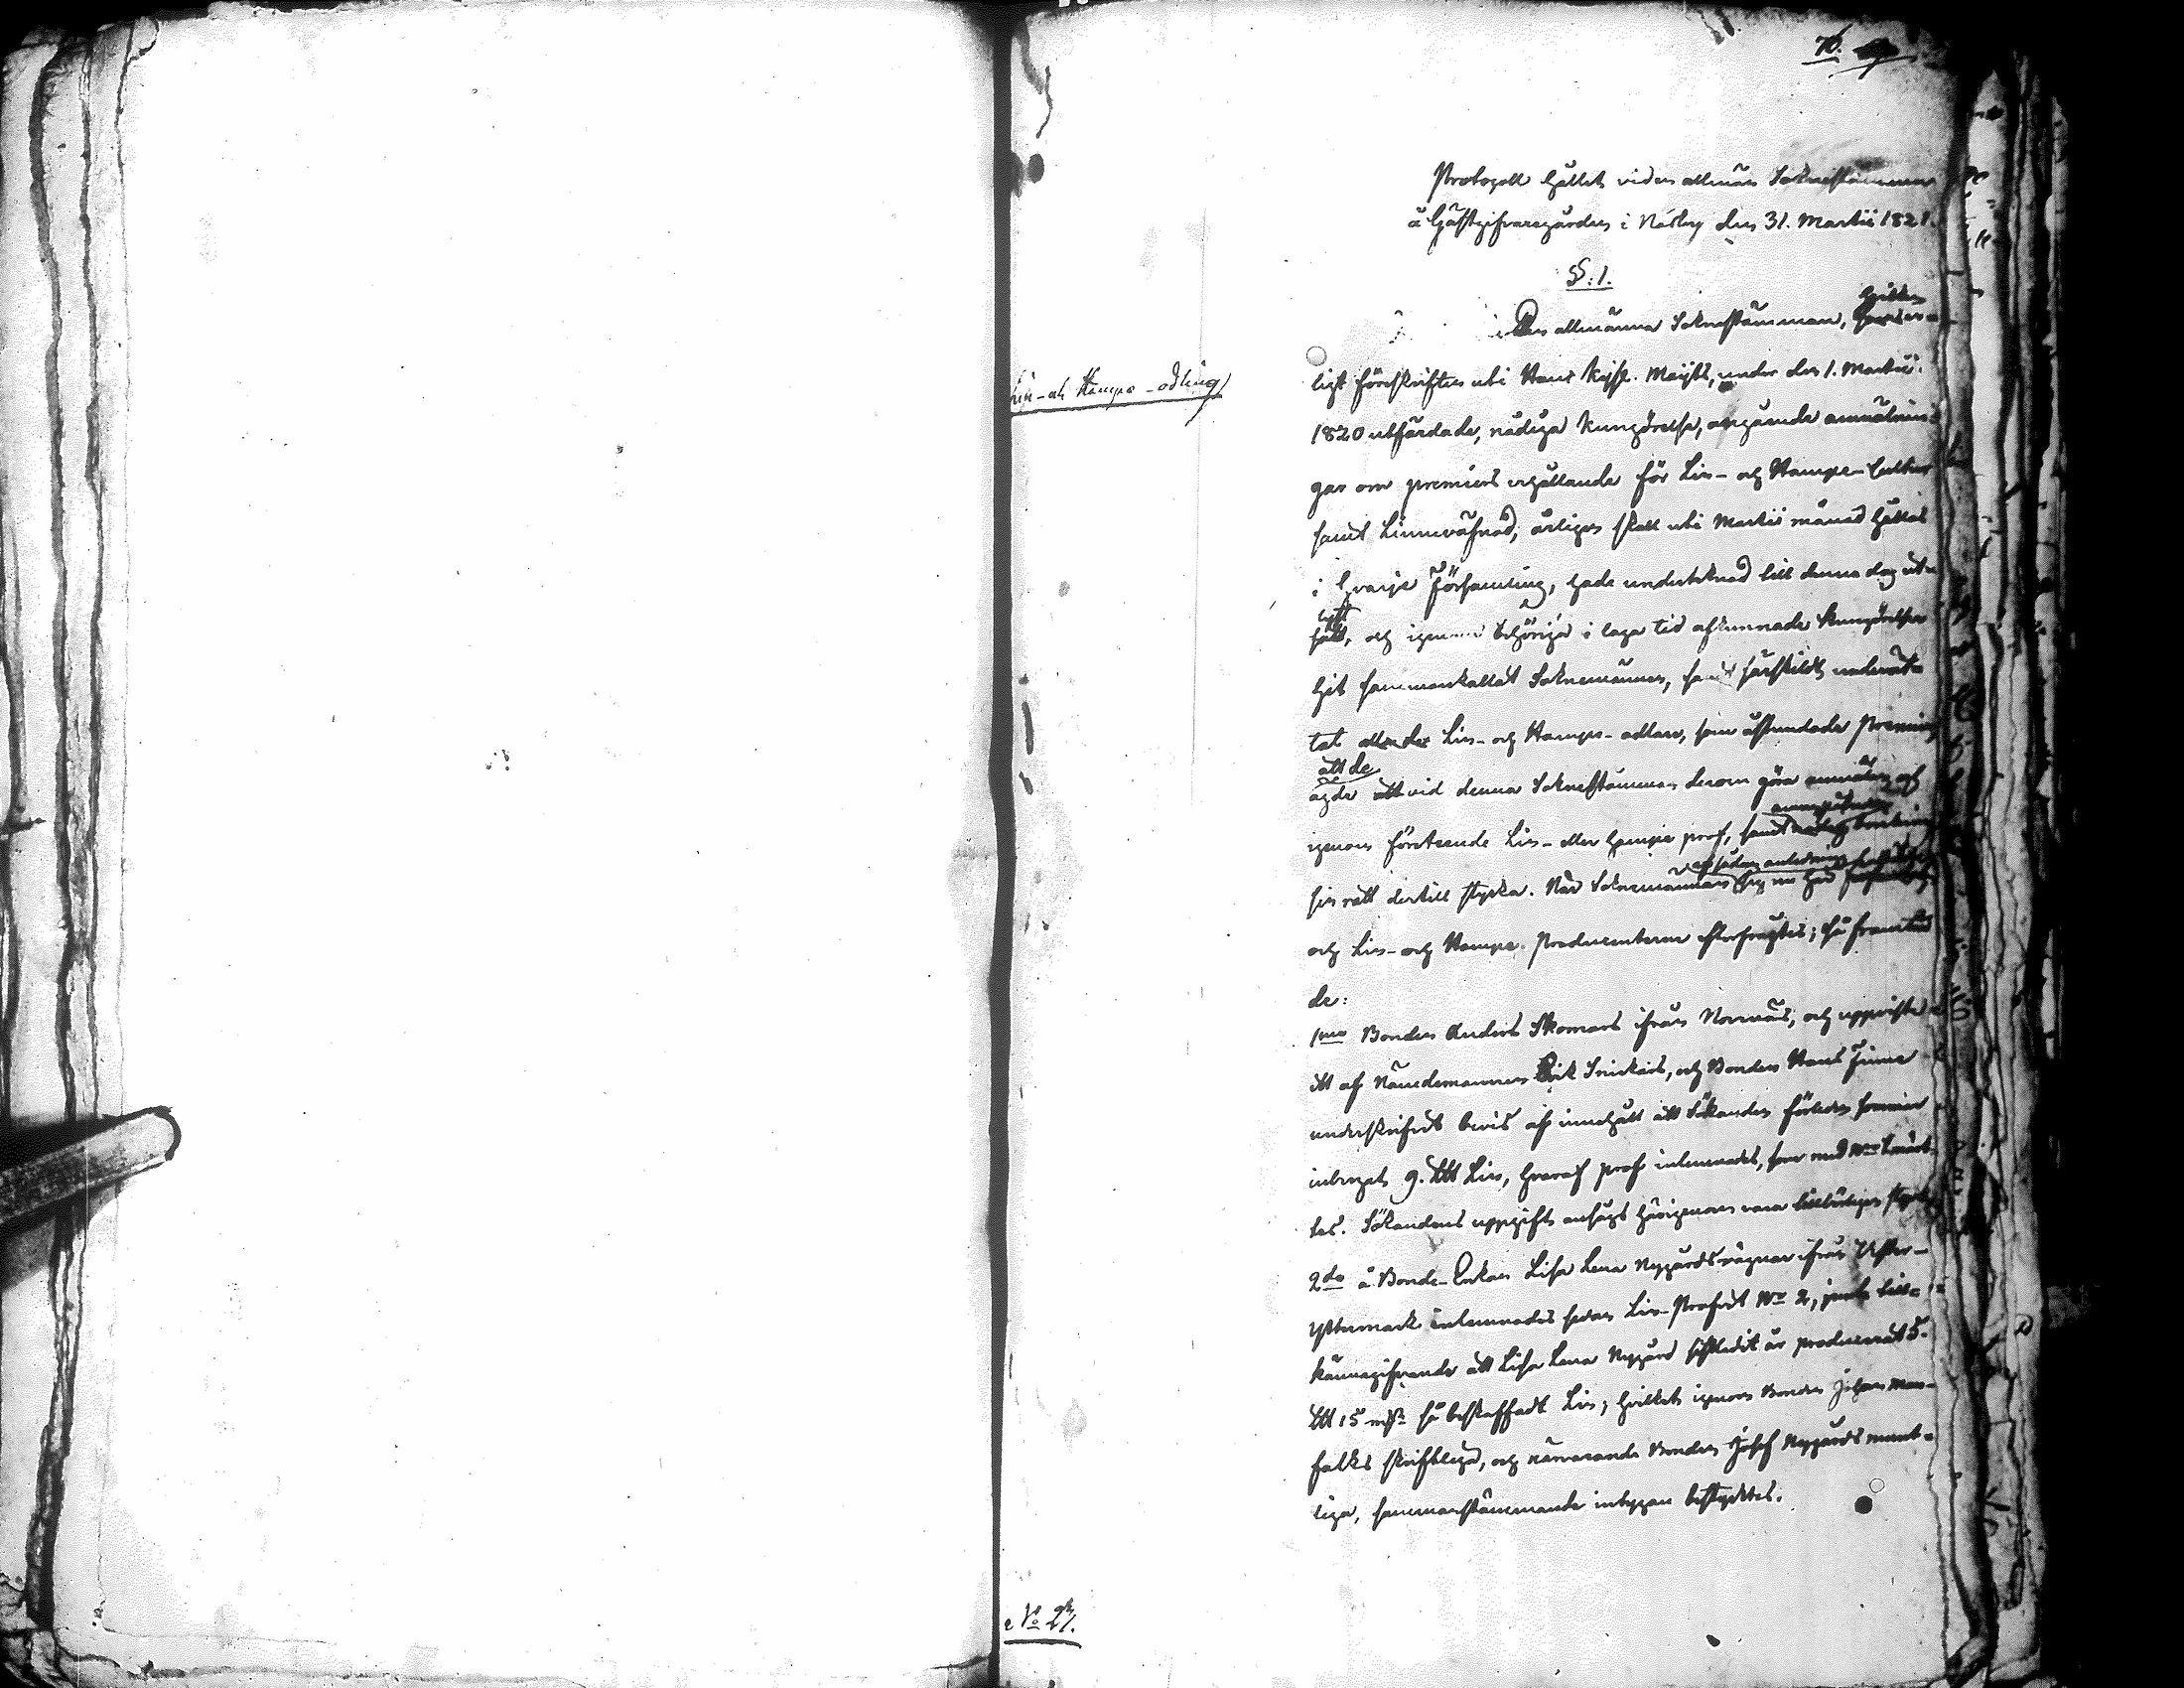 70.
Protocoll hållet vid en allmän Soknestämma
å Gästgifvaregården i Näsby den 31. Martii 1821.
§. 1.
hvilken
Den allmänna Sokneståmman,
Lin- och Hampe-odling
ligt föreskriften uti Hans Kejs. Maijts, under den 1. Martii
1820 utfärdade, nådiga Kungörelse, angående anmälnin-
gar om premiers erhållande för Lin- och Hampe-Cultur
samt Linnevåfnad, årligen skall uti Martii månad hållas
i hvarje Församling, hade undertecknad till denna dag ut-
lyst
satt, och igenom behörigen i laga tid afkunnade Kungörelser
hit sammankallat Soknemännen, samt särskildt underrät-
tat alla de Lin- och Hampe-odlare, som åstundade Premier,
att de
ägde att vid denna Sokneståmma derom göra anmälan och
igenom företeende Lin- eller hampe prof, samt
sin rätt dertill styrka. När Soknemännen sig nu
och Lin- och Hampe-Producenterne efterfrågtes; så framträd-
de:
1mo Bonden Anders Skomars ifrån Norrnäs, och uppviste
ett af Nämndemannen Erik Snickars, och Bonden Hans Finne
underskrifvet bevis af innehåll att Sökanden förleden sommar
inbergat 9. Ltt Lin, hvaraf prof inlemnades, som med No 1 märk-
tes. Sökandens uppgift ansågs härigenom vara tillräckligen styrkt
2do å Bonde-Enkan Lisa Lena Nygårds vägnar ifrån Öfver-
Yttermark inlemnades sedan Lin-Profvet No 2, jemte till-
kännagifvande att Lisa Lena Nygård sistledit år producerat 5.
Ltt 15 m så beskaffadt Lin; hvilket igenom Bonden Johan Man-
falks skriftliga, och närvarande Bonden Josef Nygårds munt-
liga, sammanstämmande intygan bestyrktes.
No 27.